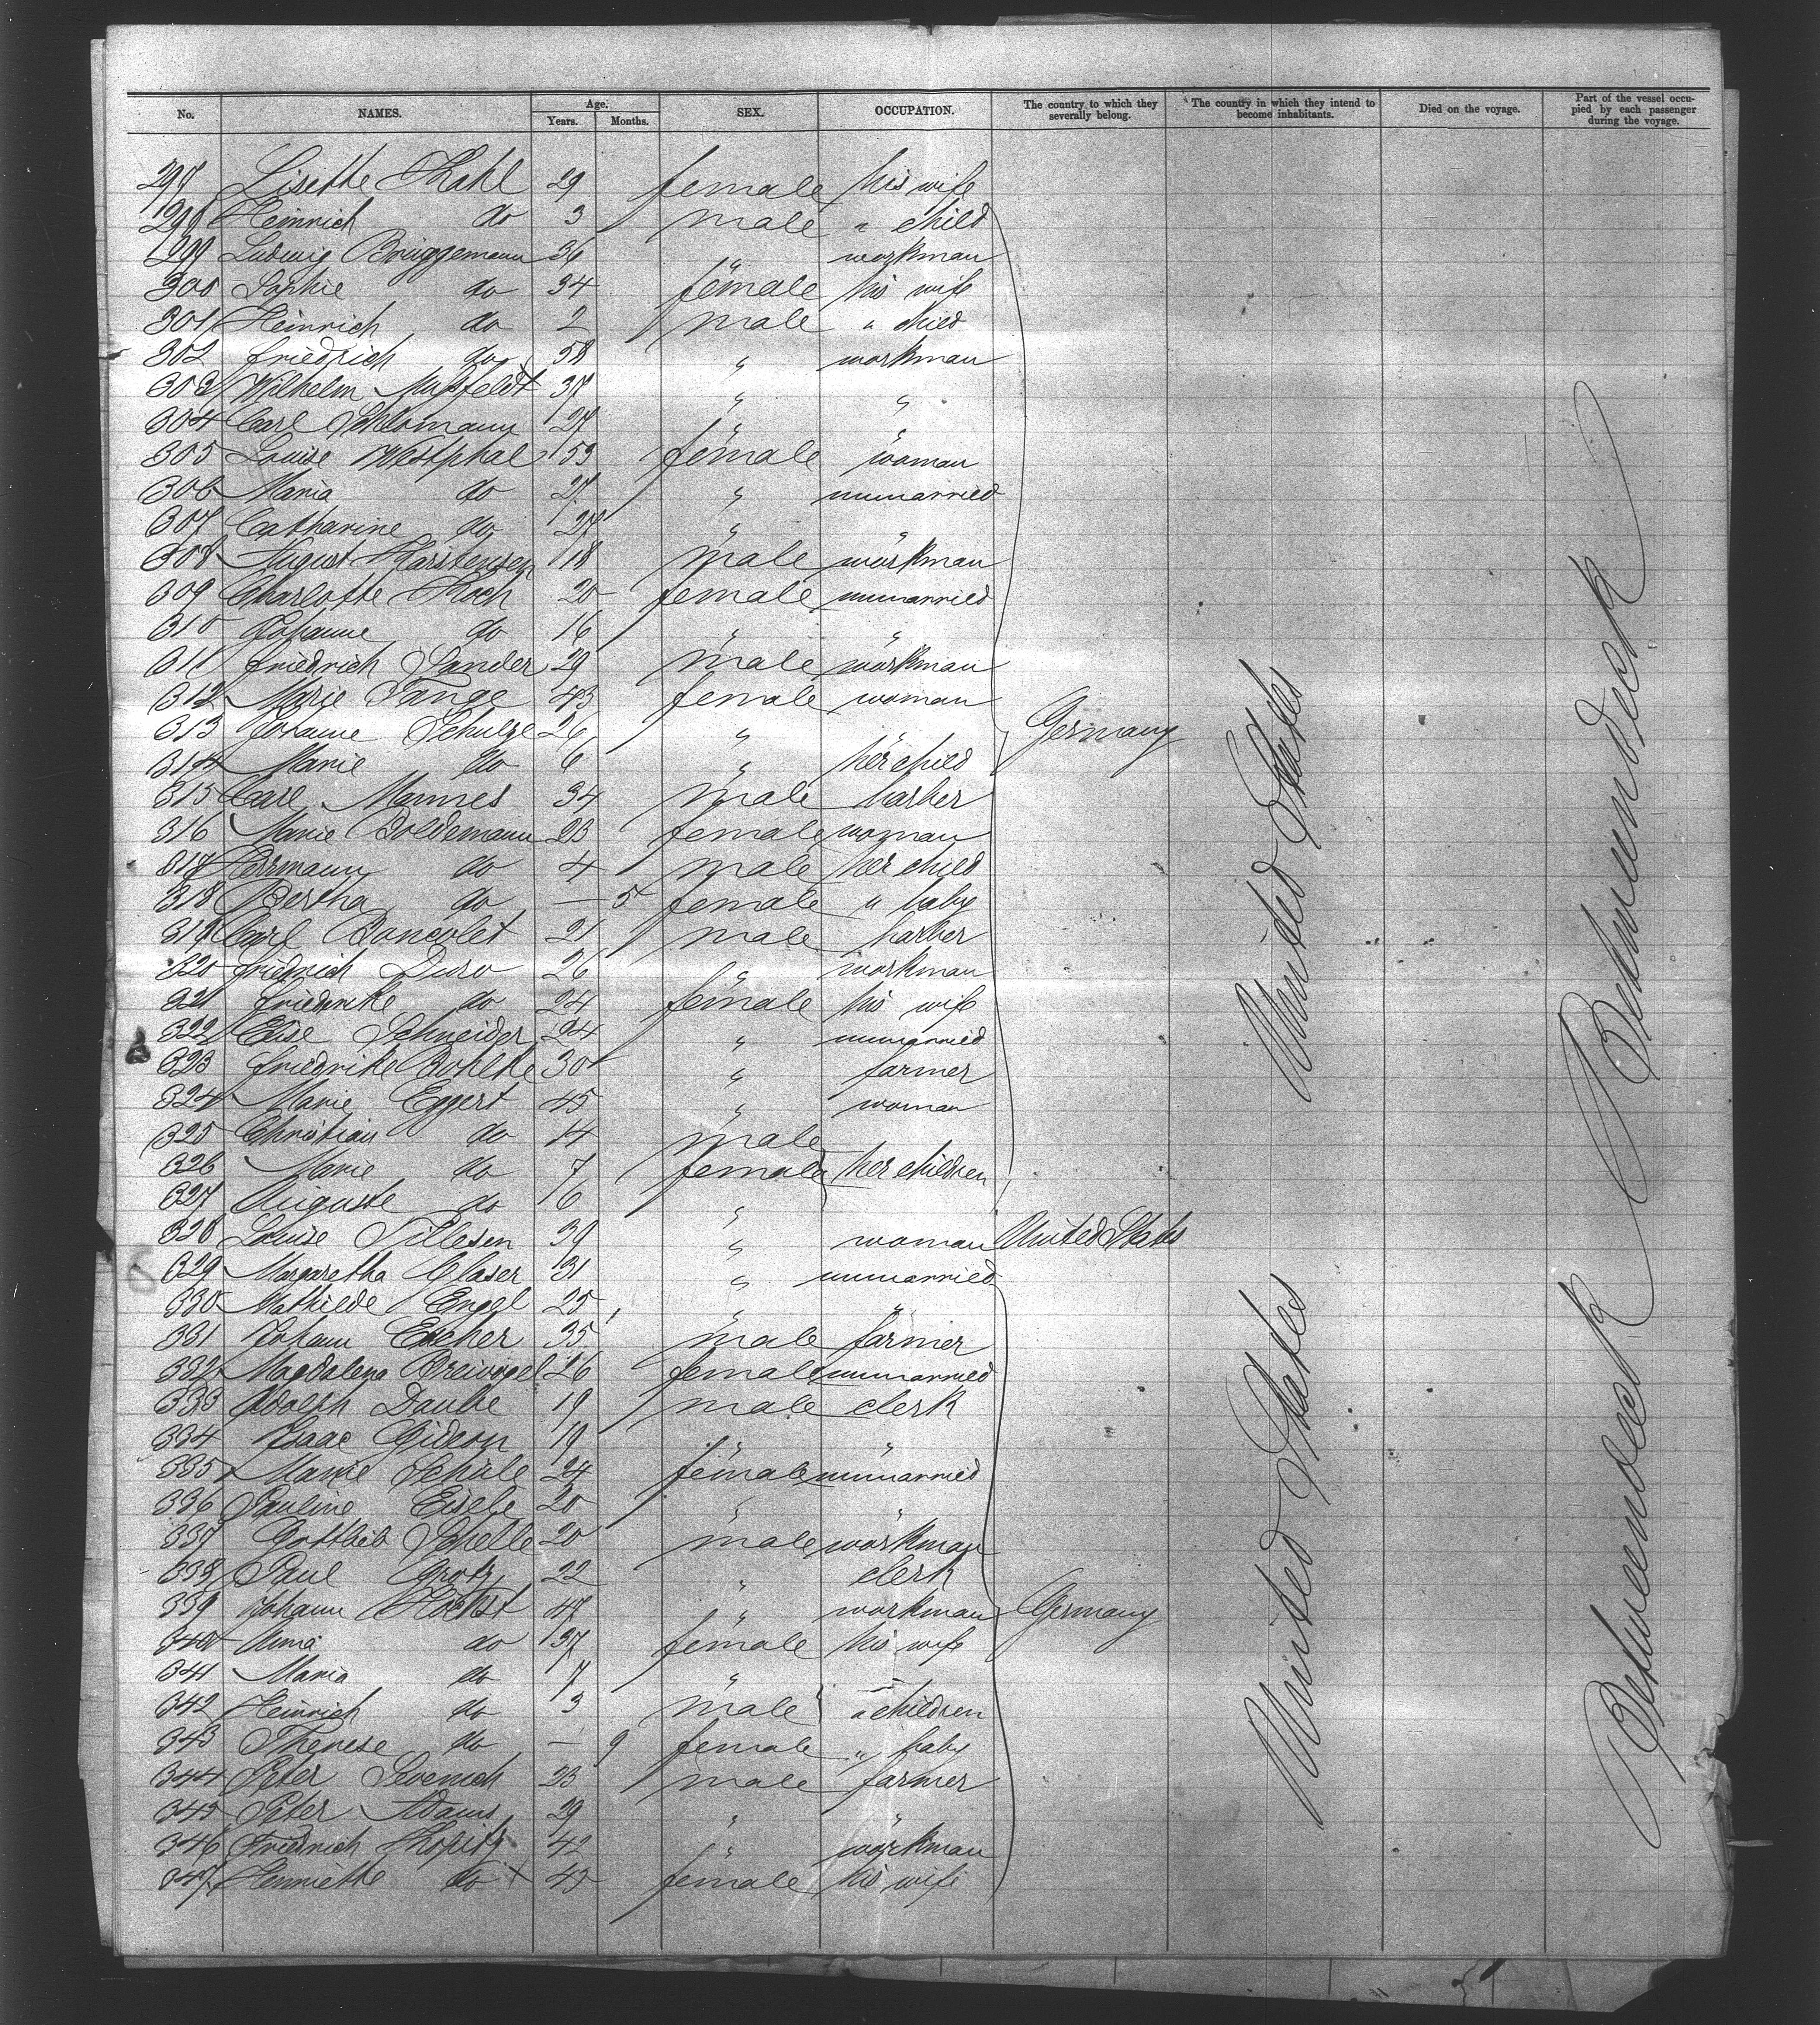 No. NAMES. Age. Years. Months. SEX. OCCUPATION. The country to which they severally belong. The country in which they intend to become inhabitants. Died on the voyage. Part of the vessel occupied by each passenger during the voyage.
297 Lisette Kahl 29 female his wife
298 Heinrich do 3 male " child
299 Ludwig Brüggemann 36 " workman
300 Sophie do 34 female his wife
301 Heinrich do 2 male " child
302 Friedrich do 58 " workman
303 Wilhelm Mussfeldt 37 " "
304 Carl Schlomann 27 " "
305 Louise Westphal 53 female woman
306 Maria do 27 " unmarried
307 Catharine do 27 " "
308 August Karstensen 18 male workman
309 Charlotte Koch 20 female unmarried
310 Johanne do 16 " "
311 Friedrich Sander 29 male workman
312 Marie Tange 43 female woman
313 Johanne Schulze 26 " " Germany
314 Marie do 6 " her child
315 Carl Mannes 34 male barber
316 Marie Boldemann 23 female woman
317 Herrmann do 4 male her child
318 Bertha do — 5 female " baby
319 Carl Boncolet 21 male barber
320 Friedrich Duro 26 " workman
321 Friedrike do 24 female his wife United States
322 Elise Schneider 24 " unmarried
323 Friedrike Bohlke 30 " farmer
324 Marie Eggert 45 " woman
325 Christian do 14 male
326 Marie do 7 female her children
327 Auguste do 6 "
328 Louise Tillesen 39 " woman United States
329 Margaretha Glaser 31 " unmarried
330 Mathilde Engel 25 " "
331 Johann Escher 35 male farmer
332 Magdalena Breivogel 26 female unmarried
333 Adolph Daube 19 male clerk
334 Isaac Gideon 19 " "
335 Marie Schüle 24 female unmarried
336 Pauline Eisele 20 " "
337 Gottlieb Schelle 20 male workman
338 Paul Grotz 22 " clerk
339 Johann Höchst 47 " workman Germany
340 Anna do 37 female his wife United States
341 Maria do 7 "
342 Heinrich do 3 male " children
343 Therese do — 9 female " baby
344 Peter 23 male farmer
345 Peter Adams 29 " "
346 Friedrich Kopitz 42 " workman
347 Henriette do 45 female his wife
Betweendeck
Betweendeck